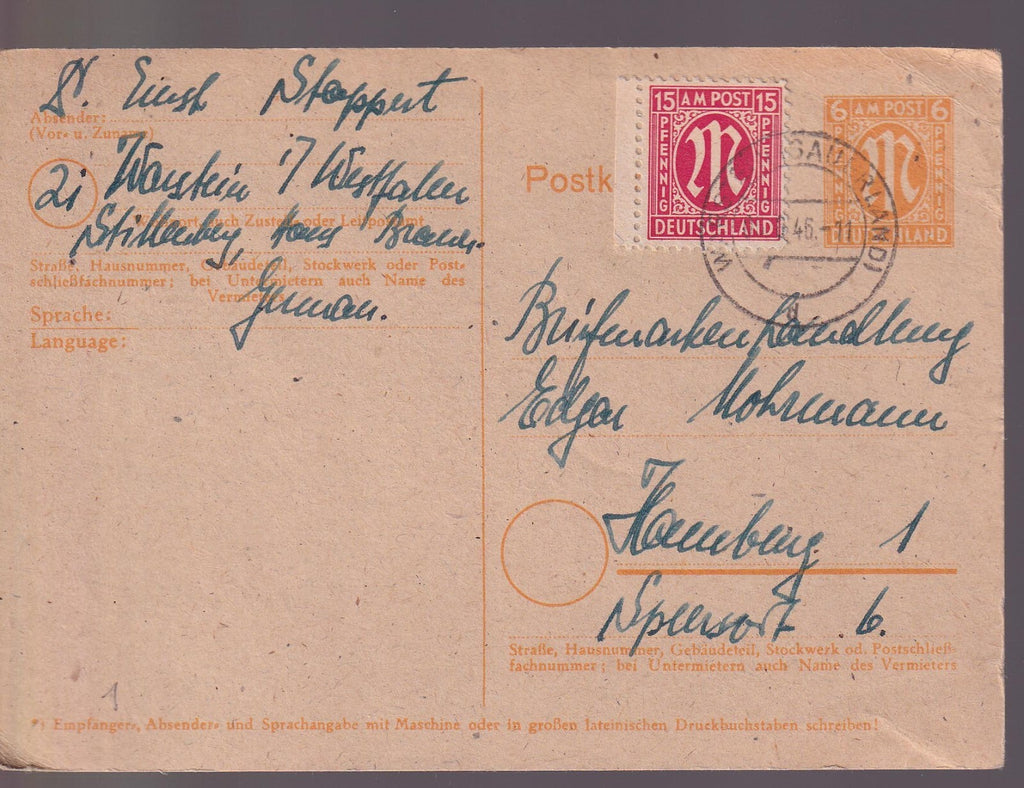 Dr. Ernst Stappert
Absender:
(Vor- u. Zuname)
21 Warstein i/ Westfalen
Wohnort, auch Zustell- oder Leitpostamt
Stillenberg, Haus
Straße, Hausnummer, Gebäudeteil, Stockwerk oder Post-
schließfachnummer; bei Untermietern auch Name des
Vermieters
German.
Sprache:
Language:
Postk
15 AM POST 15
PFENNIG PFENNIG
DEUTSCHLAND
6 AM POST 6
PFENNIG PFENNIG
DEUTSCHLAND
46.-11
Briefmarkenhandlung
Edgar Mohrmann
Hamburg 1
Speersort 6.
Straße, Hausnummer, Gebäudeteil, Stockwerk od. Postschließ-
fachnummer; bei Untermietern auch Name des Vermieters
1
*) Empfänger-, Absender- und Sprachangabe mit Maschine oder in großen lateinischen Druckbuchstaben schreiben!